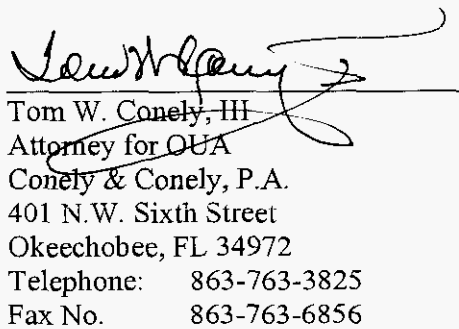 Tom W. Conely, III
Attorney for OUA
Conely & Conely, P.A.
401 N.W. Sixth Street
Okeechobee, FL 34972
Telephone: 863-763-3825
Fax No. 863-763-6856